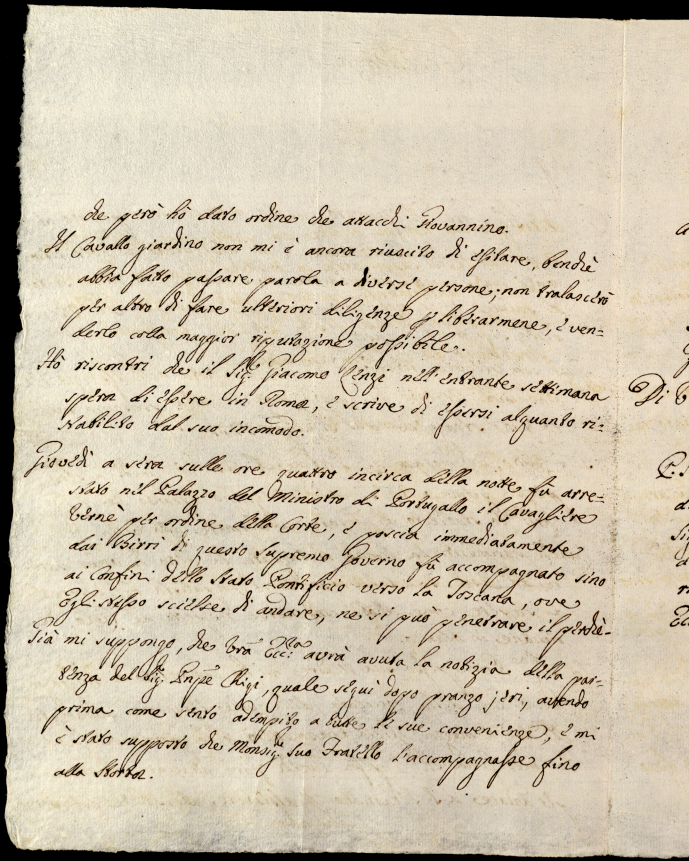 che però hò dato ordine che attacchi Giovannino.
Il Cavallo giardino non mi è ancora riuscito di esitare, benchè
abbia fatto passare parola a diverse persone; non tralascerò
per altro di fare ulteriori diligenze p liberarmene, e ven=
derlo colla maggior riputazione possibile.
Hò riscontri che il Sig.r Giacomo Cenzi nell'entrante settimana
spera di essere in Roma, e scrive di essersi alquanto ri=
stabilito dal suo incomodo.
Giovedì a sera sulle ore quattro incirca della notte fù arre=
stato nel Palazzo del Ministro di Portugallo il Cavagliere
Vernè per ordine della Corte, e poscia immediatamente
dai Birri di questo supremo Governo fù accompagnato sino
ai Confini dello Stato Pontificio verso la Toscana, ove
Egli stesso scielse di andare, ne si può penetrare il perchè.
Già mi suppongo, che Vrã Ecc.za avrà avuta la notizia della par=
tenza del Sig.r Pnpe Chigi, quale seguì dopo pranzo jeri, avendo
prima come sento adempito a tutte le sue convenienze, e mi
è stato supposto che Monsig.r suo Fratello l'accompagnasse fino
alla Storta.
Di